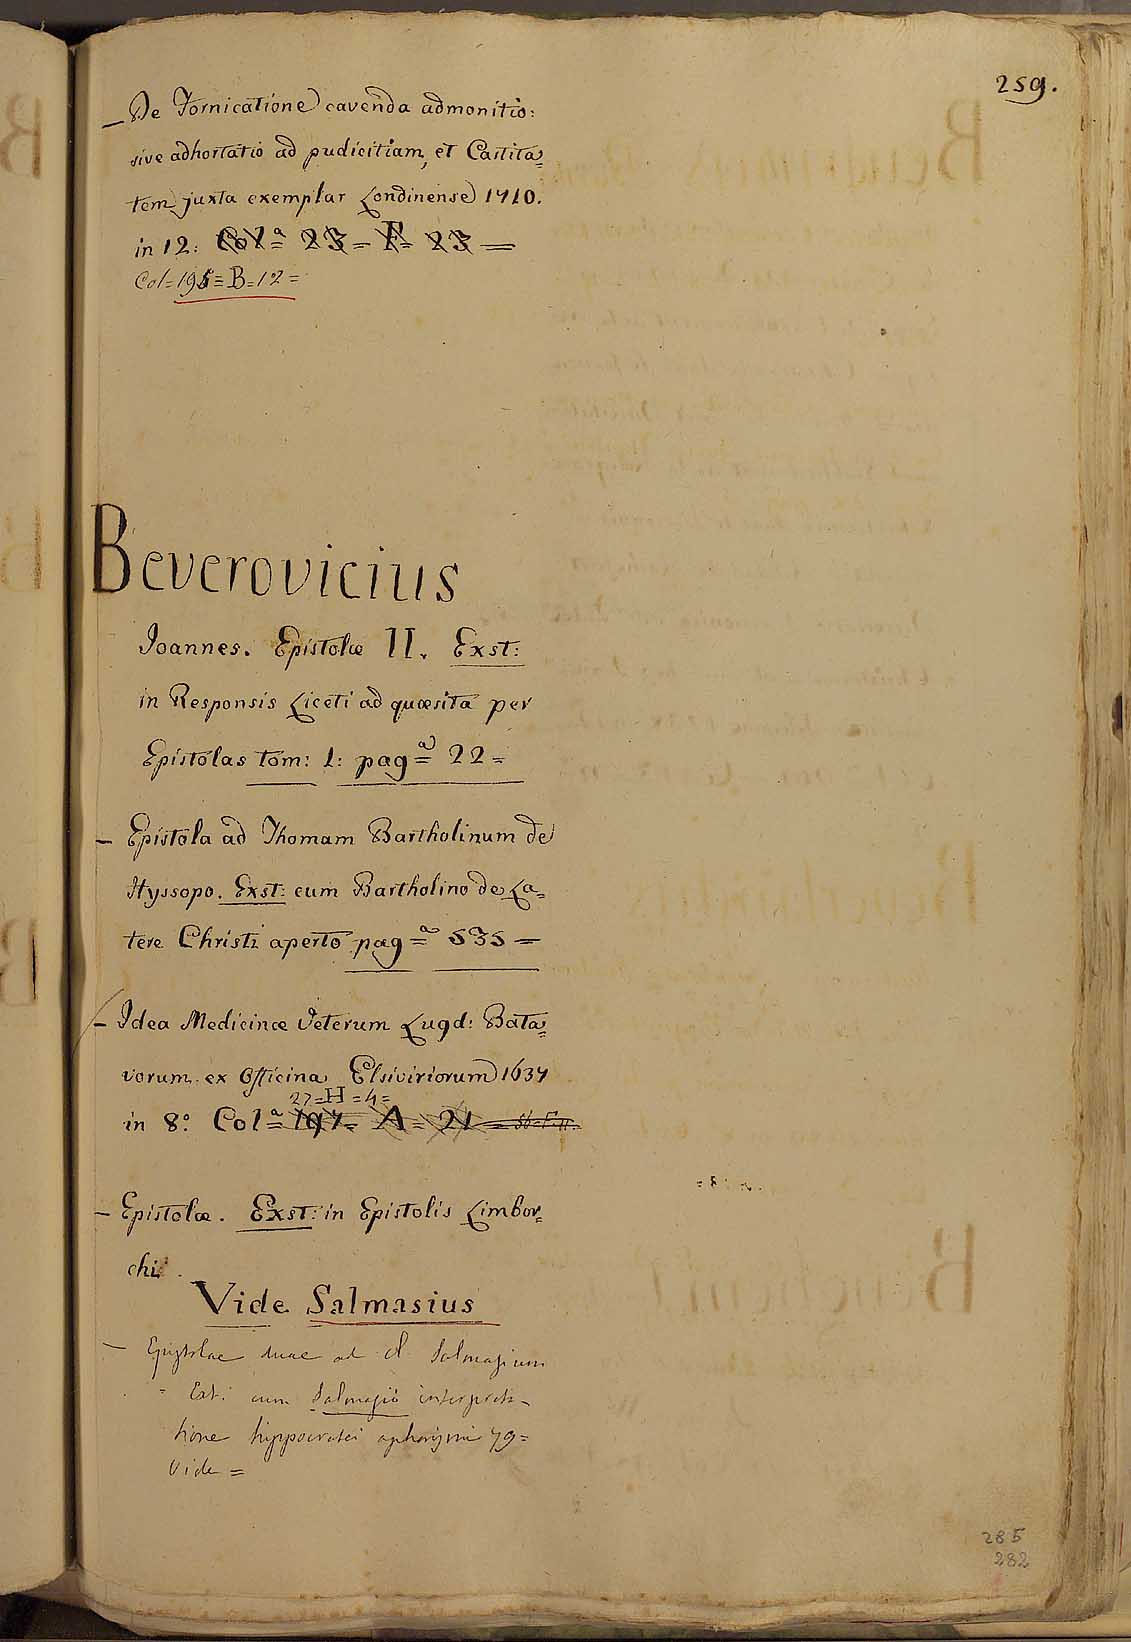 259.
— De Fornicatione cavenda admonitio:
sive adhortatio ad pudicitiam, et Castita=
tem juxta exemplar Londinense 1710.
in 12: Colª= 23 = F= 23 —
Col= 195= B= 12 =
Beverovicius
Joannes. Epistolæ II. Exst:
in Responsis Liceti ad quæsita per
Epistolas tom: 1: pagª= 22 =
— Epistola ad Thomam Bartholinum de
Hyssopo. Exst: cum Bartholino de La=
tere Christi aperto pagª= 535 =
— Idea Medicinæ Veterum Lugd: Bata=
vorum ex Officina Elsiviriorum 1637
27= H = 4=
in 8º: Colª= 197= A= 21 =
— Epistolæ. Exst: in Epistolis Limbor=
chi.
Vide Salmasius
— Epistolae duae ad Cl. Salmasium
Ext: cum Salmasio interpreta=
tione hippocratei aphorismi 79=
Vide =
285
282